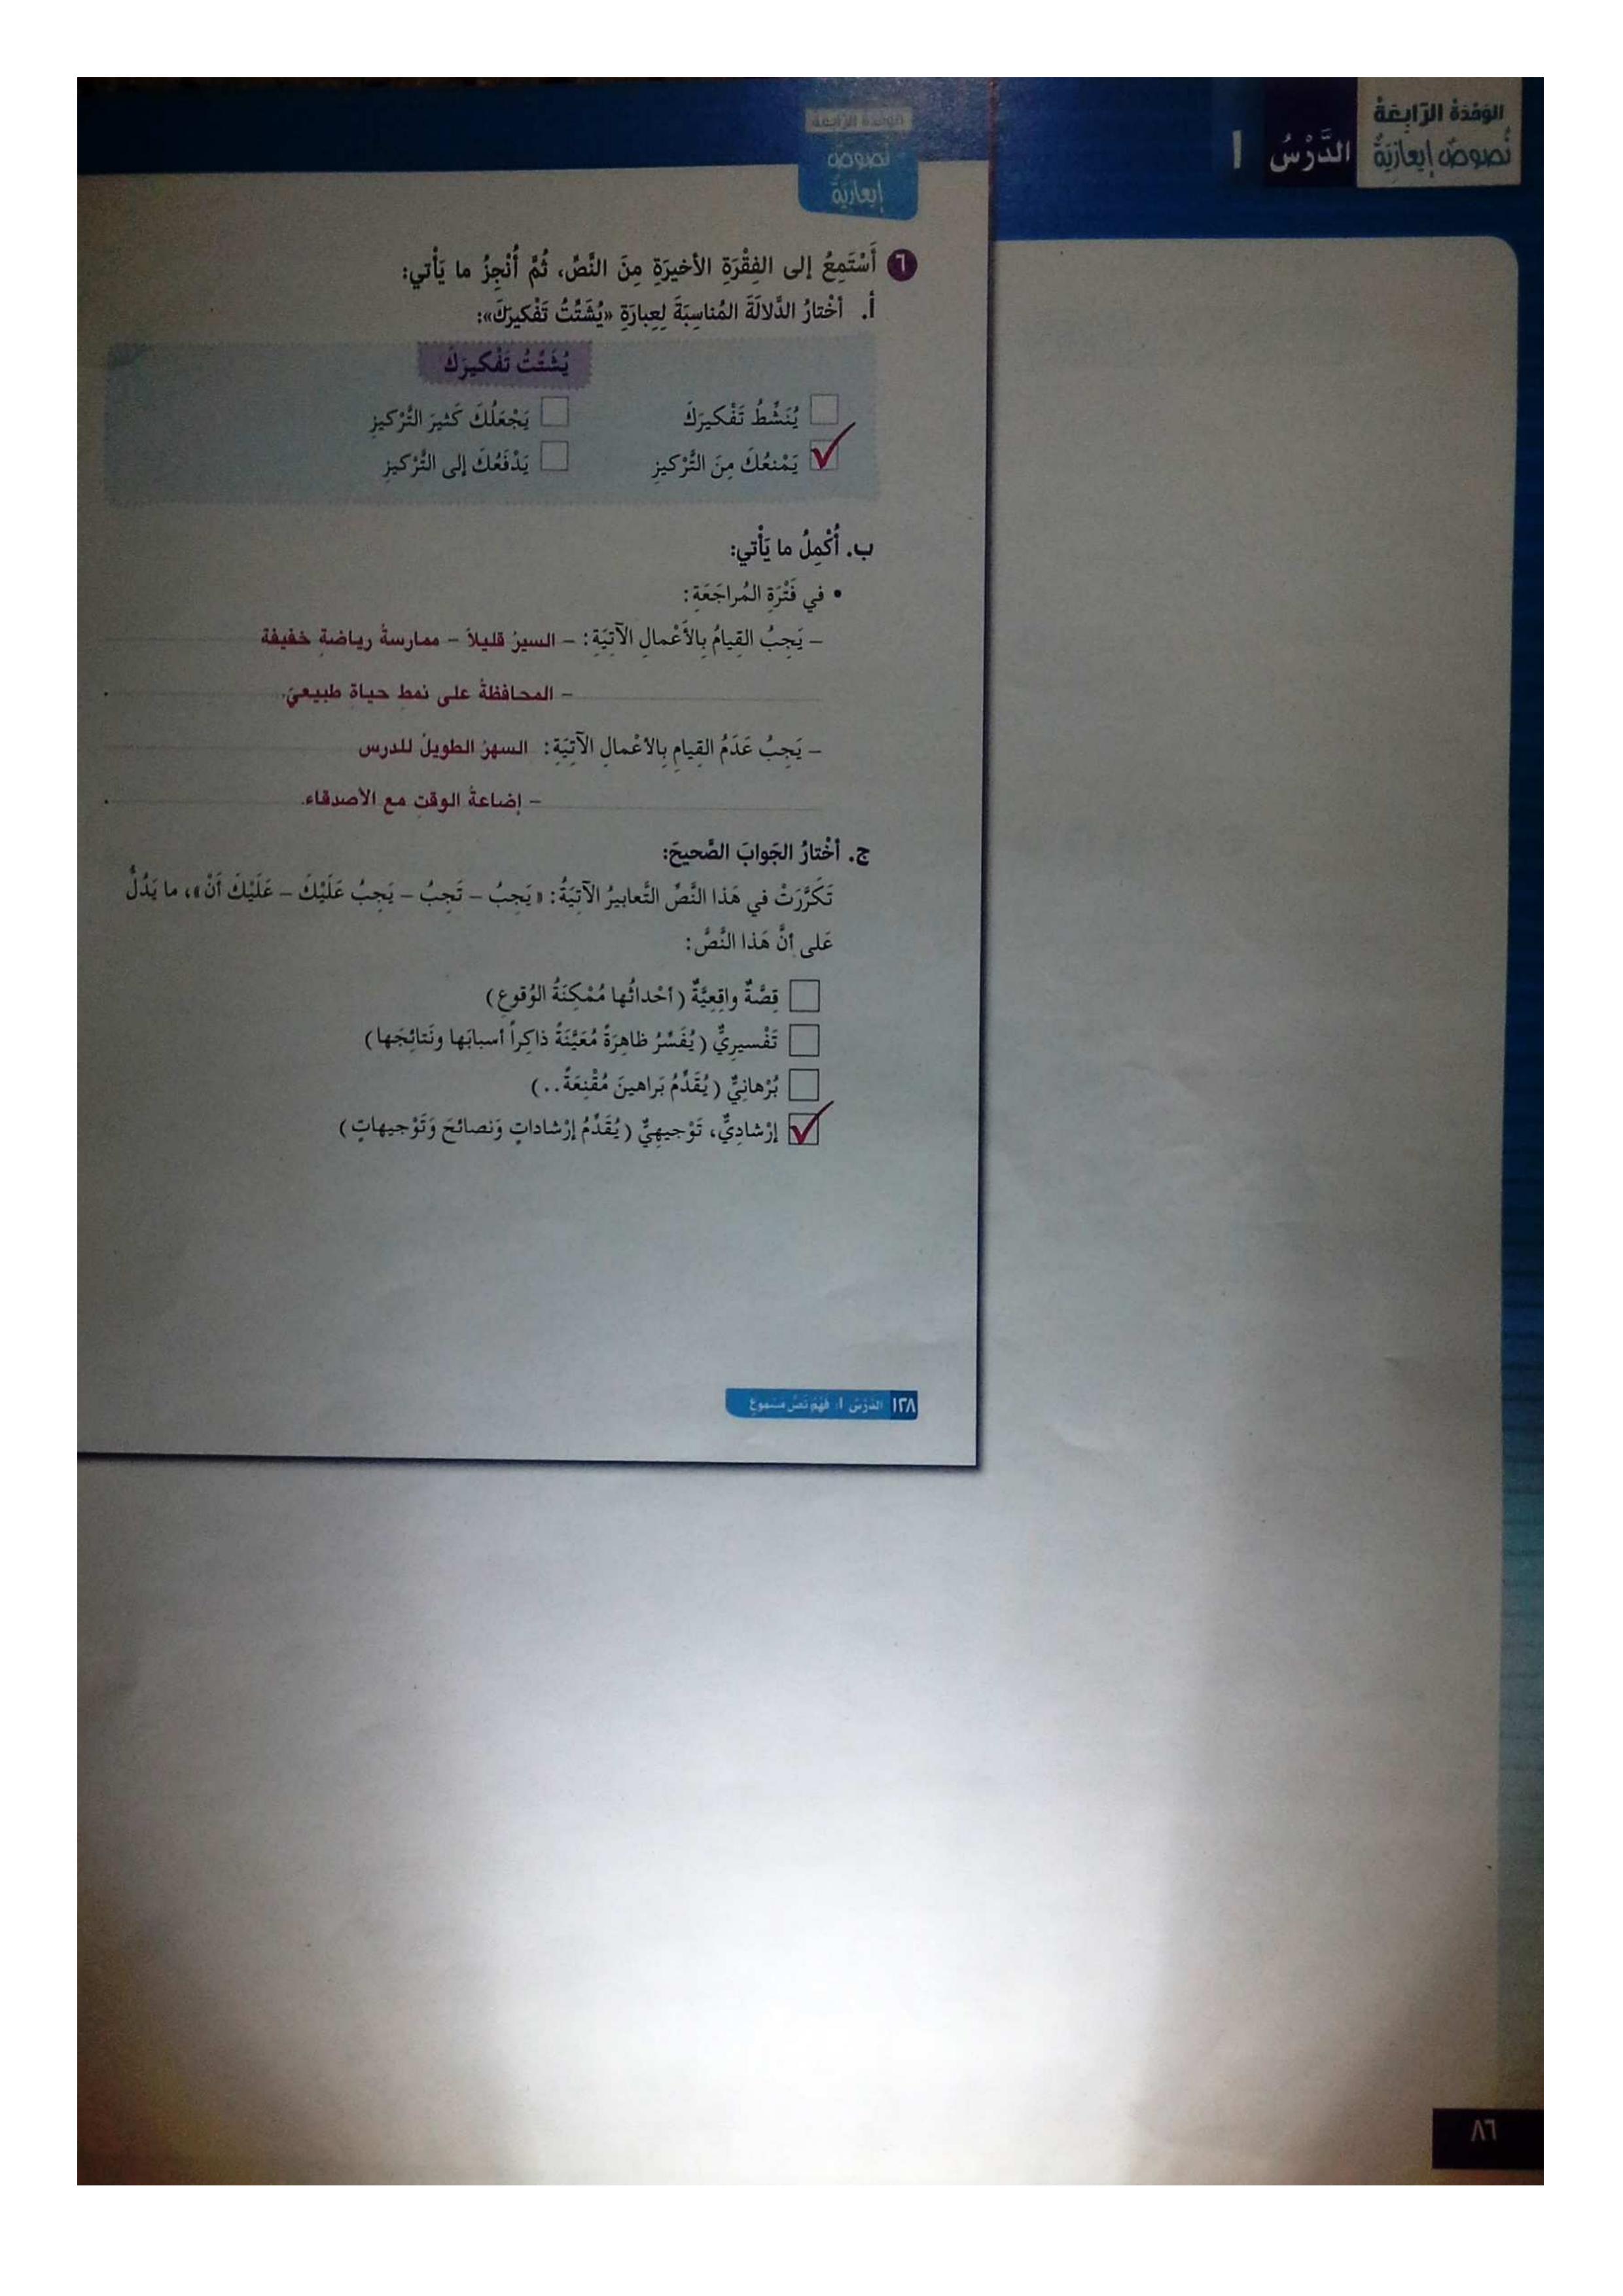 الوَحْدَةُ الرّابِعَةُ
نُصوصٌ إيعازِيَّةٌ
الدَّرْسُ ١
الوَحْدَةُ الرّابِعَةُ
نُصوصٌ
إيعازِيَّةٌ
٦ أَسْتَمِعُ إلى الفِقْرَةِ الأخيرَةِ مِنَ النَّصِّ، ثُمَّ أُنْجِزُ ما يَأْتي:
أ. أخْتارُ الدَّلالَةَ المُناسِبَةَ لِعِبارَةِ «يُشَتِّتُ تَفْكيرَكَ»:
يُشَتِّتُ تَفْكيرَكَ
يُنَشِّطُ تَفْكيرَكَ يَجْعَلُكَ كَثيرَ التَّرْكيزِ
✓ يَمْنَعُكَ مِنَ التَّرْكيزِ يَدْفَعُكَ إلى التَّرْكيزِ
ب. أُكْمِلُ ما يَأْتي:
• في فَتْرَةِ المُراجَعَةِ:
– يَجِبُ القِيامُ بِالأَعْمالِ الآتِيَةِ: – السيرُ قليلاً – ممارسةُ رياضةٍ خفيفة
– المحافظةُ على نمطِ حياةٍ طبيعيّ.
– يَجِبُ عَدَمُ القِيامِ بِالأعْمالِ الآتِيَةِ: السهرُ الطويلُ للدرس
– إضاعةُ الوقتِ مع الأصدقاء.
ج. أخْتارُ الجَوابَ الصَّحيحَ:
تَكَرَّرَتْ في هَذا النَّصِّ التَّعابيرُ الآتِيَةُ: «يَجِبُ – تَجِبُ – يَجِبُ عَلَيْكَ – عَلَيْكَ أَنْ»، ما يَدُلُّ
عَلى أنَّ هَذا النَّصَّ:
قِصَّةٌ واقِعِيَّةٌ (أحْداثُها مُمْكِنَةُ الوُقوعِ)
تَفْسيرِيٌّ (يُفَسِّرُ ظاهِرَةً مُعَيَّنَةً ذاكِراً أسبابَها ونَتائِجَها)
بُرْهانِيٌّ (يُقَدِّمُ بَراهينَ مُقْنِعَةً..)
✓ إرْشادِيٌّ، تَوْجيهِيٌّ (يُقَدِّمُ إرْشاداتٍ وَنصائحَ وَتَوْجيهاتٍ)
١٢٨ الدَّرْسُ ١: فَهْمُ نَصٍّ مَسْموعٍ
٨٦